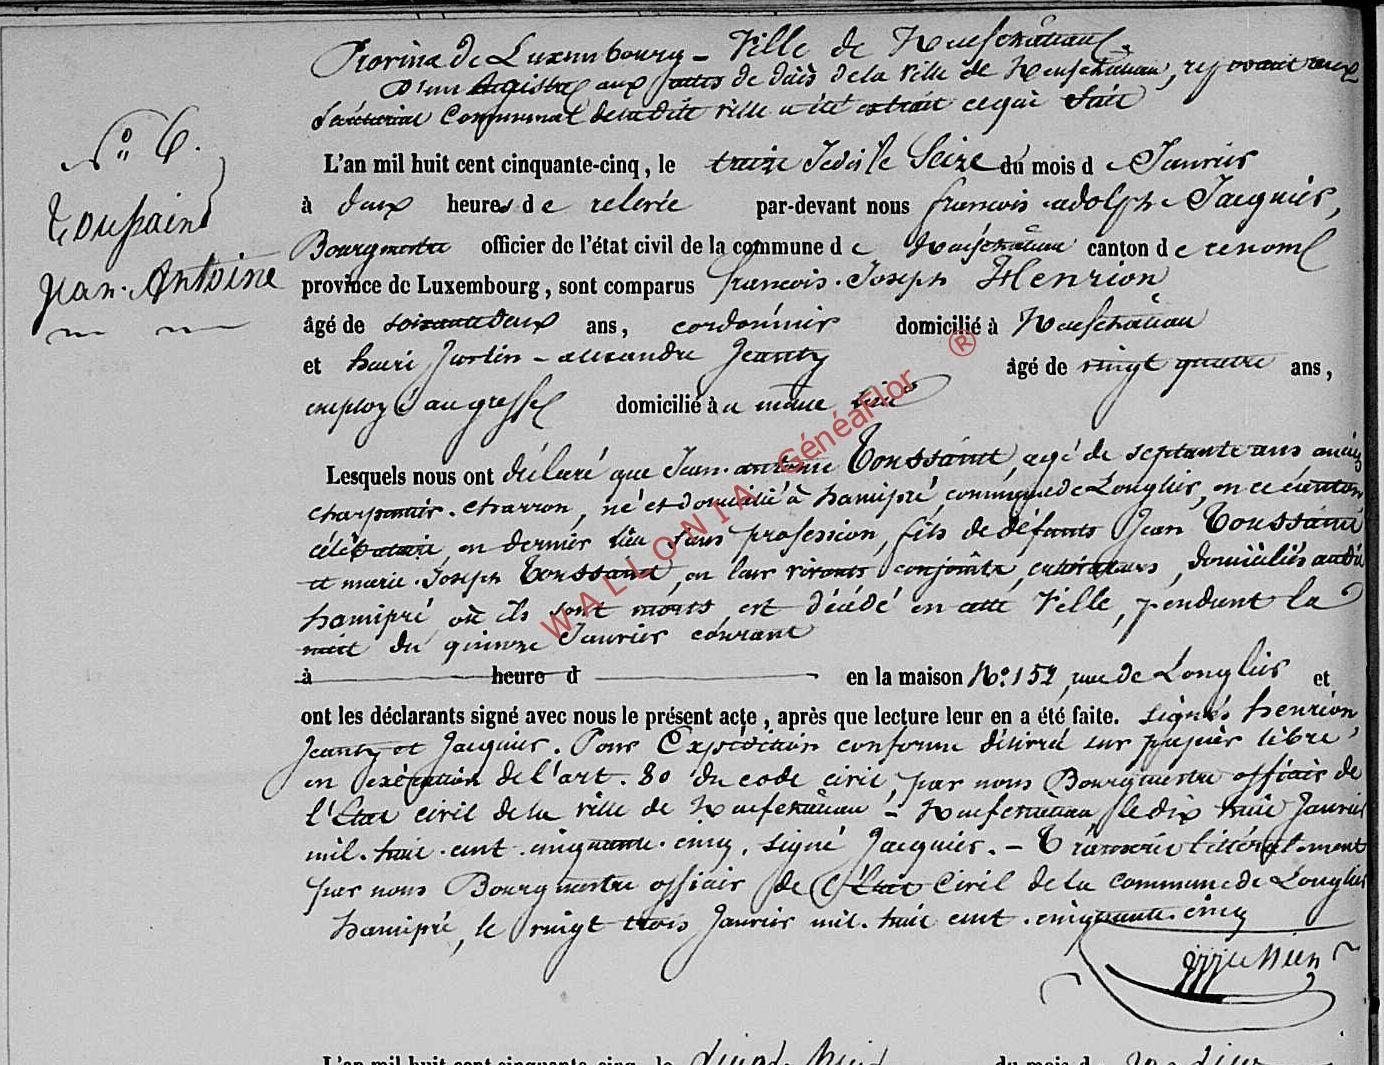 Province de Luxembourg – Ville de Neufchâteau.
D'un Registre aux actes de décès de la Ville de Neufchâteau, reposant aux
Sécrétariat Communal de la dite ville a été extrait ce qui suit
N° 6.
Toussaint
Jean-Antoine
L'an mil huit cent cinquante-cinq, le treize le Seize du mois d e Janvier
à deux heures d e relevée par-devant nous françois adolphe Jacquier,
Bourgmestre officier de l'état civil de la commune d e Neufchâteau canton d e ce nom
province de Luxembourg, sont comparus françois-Joseph Henrion
âgé de soixante deux ans, cordonnier domicilié à Neufchâteau
et henri Justin-alexandre Jeanty âgé de vingt quatre ans,
employé au greffe domicilié au même lieu
Lesquels nous ont déclaré que Jean-antoine Toussaint, agé de septante ans ancien
charpentier-charron, né et domicilié à hamipré, commune de Longlier, en ce canton
célibataire, en dernier lieu sans profession, fils de défunts Jean Toussaint
et marie-Joseph Toussaint, en leur vivants conjoints, cultivateurs, domiciliés audit
hamipré où ils sont morts est décédé en cette Ville, pendant la
nuit du quinze Janvier courant
à heure d en la maison N° 152, rue de Longlier et
ont les déclarants signé avec nous le présent acte, après que lecture leur en a été faite. signés henrion
Jeanty et Jacquier. Pour Expédition conforme délivré sur papier libre
en exécution de l'art. 80 du code civil, par nous Bourgmestre officier de
l'État civil de la ville de Neufchâteau - Neufchâteau le dix huit Janvier
mil-huit-cent-cinquante-cinq. signé Jacquier. – Transcrit littéralement
par nous Bourgmestre officier de l'État Civil de la commune de Longlier
hamipré, le vingt trois Janvier mil-huit cent-cinquante-cinq
WALLONIA GénéaFlor ®
L'an mil huit cent cinquante-cinq, le du mois d